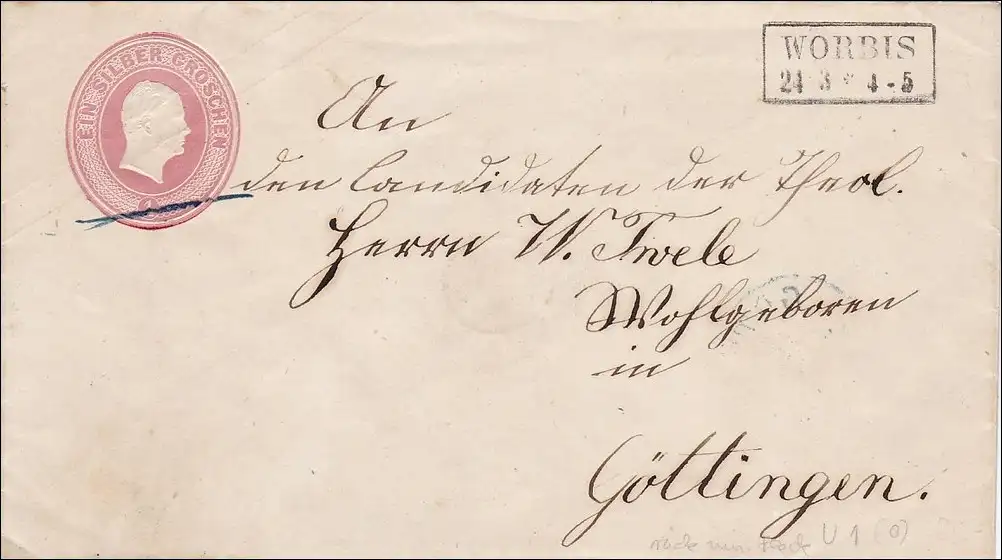 EIN SILBER GROSCHEN
1
WORBIS
24 3 * 4-5
An
den Candidaten der Theol.
Herrn W. Twele
Wohlgeboren
in
Göttingen.
U 1 (0)